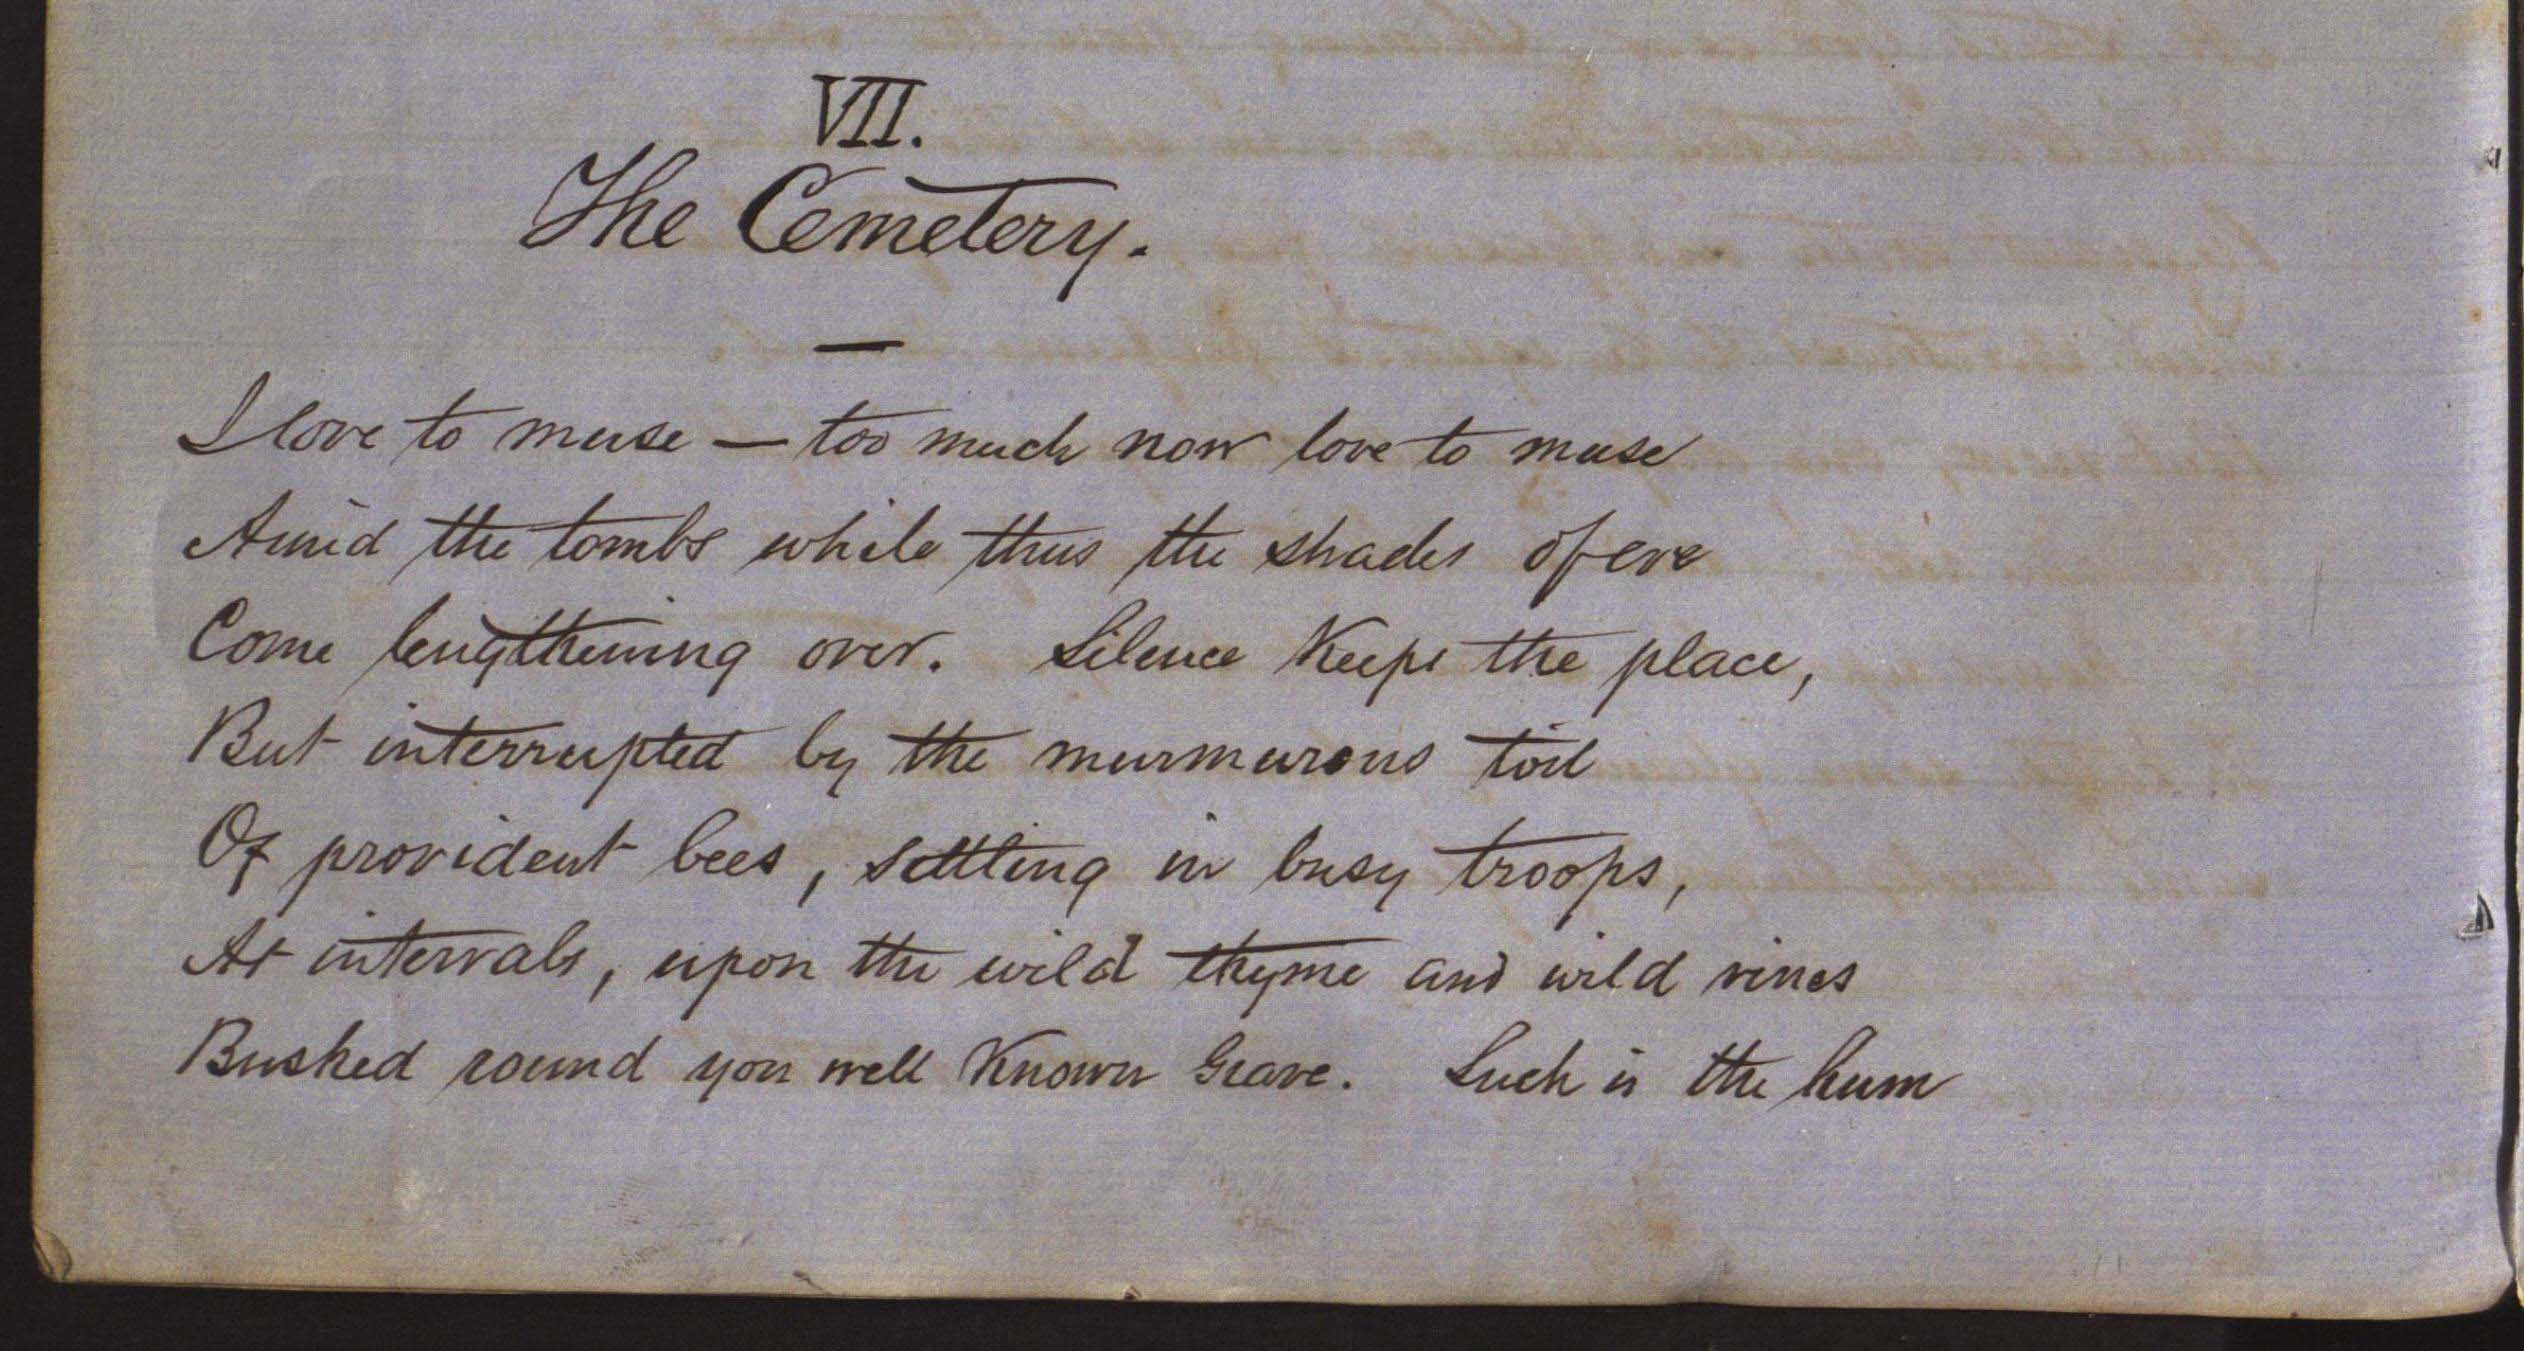 VII.
The Cemetery.
—
I love to muse — too much now love to muse
Amid the tombs while thus the shades of eve
Come lengthening over. Silence Keeps the place,
But interrupted by the murmurous toil
Of provident bees, settling in busy troops,
At intervals, upon the wild thyme and wild vines
Bushed round yon well Known Grave. Such is the hum